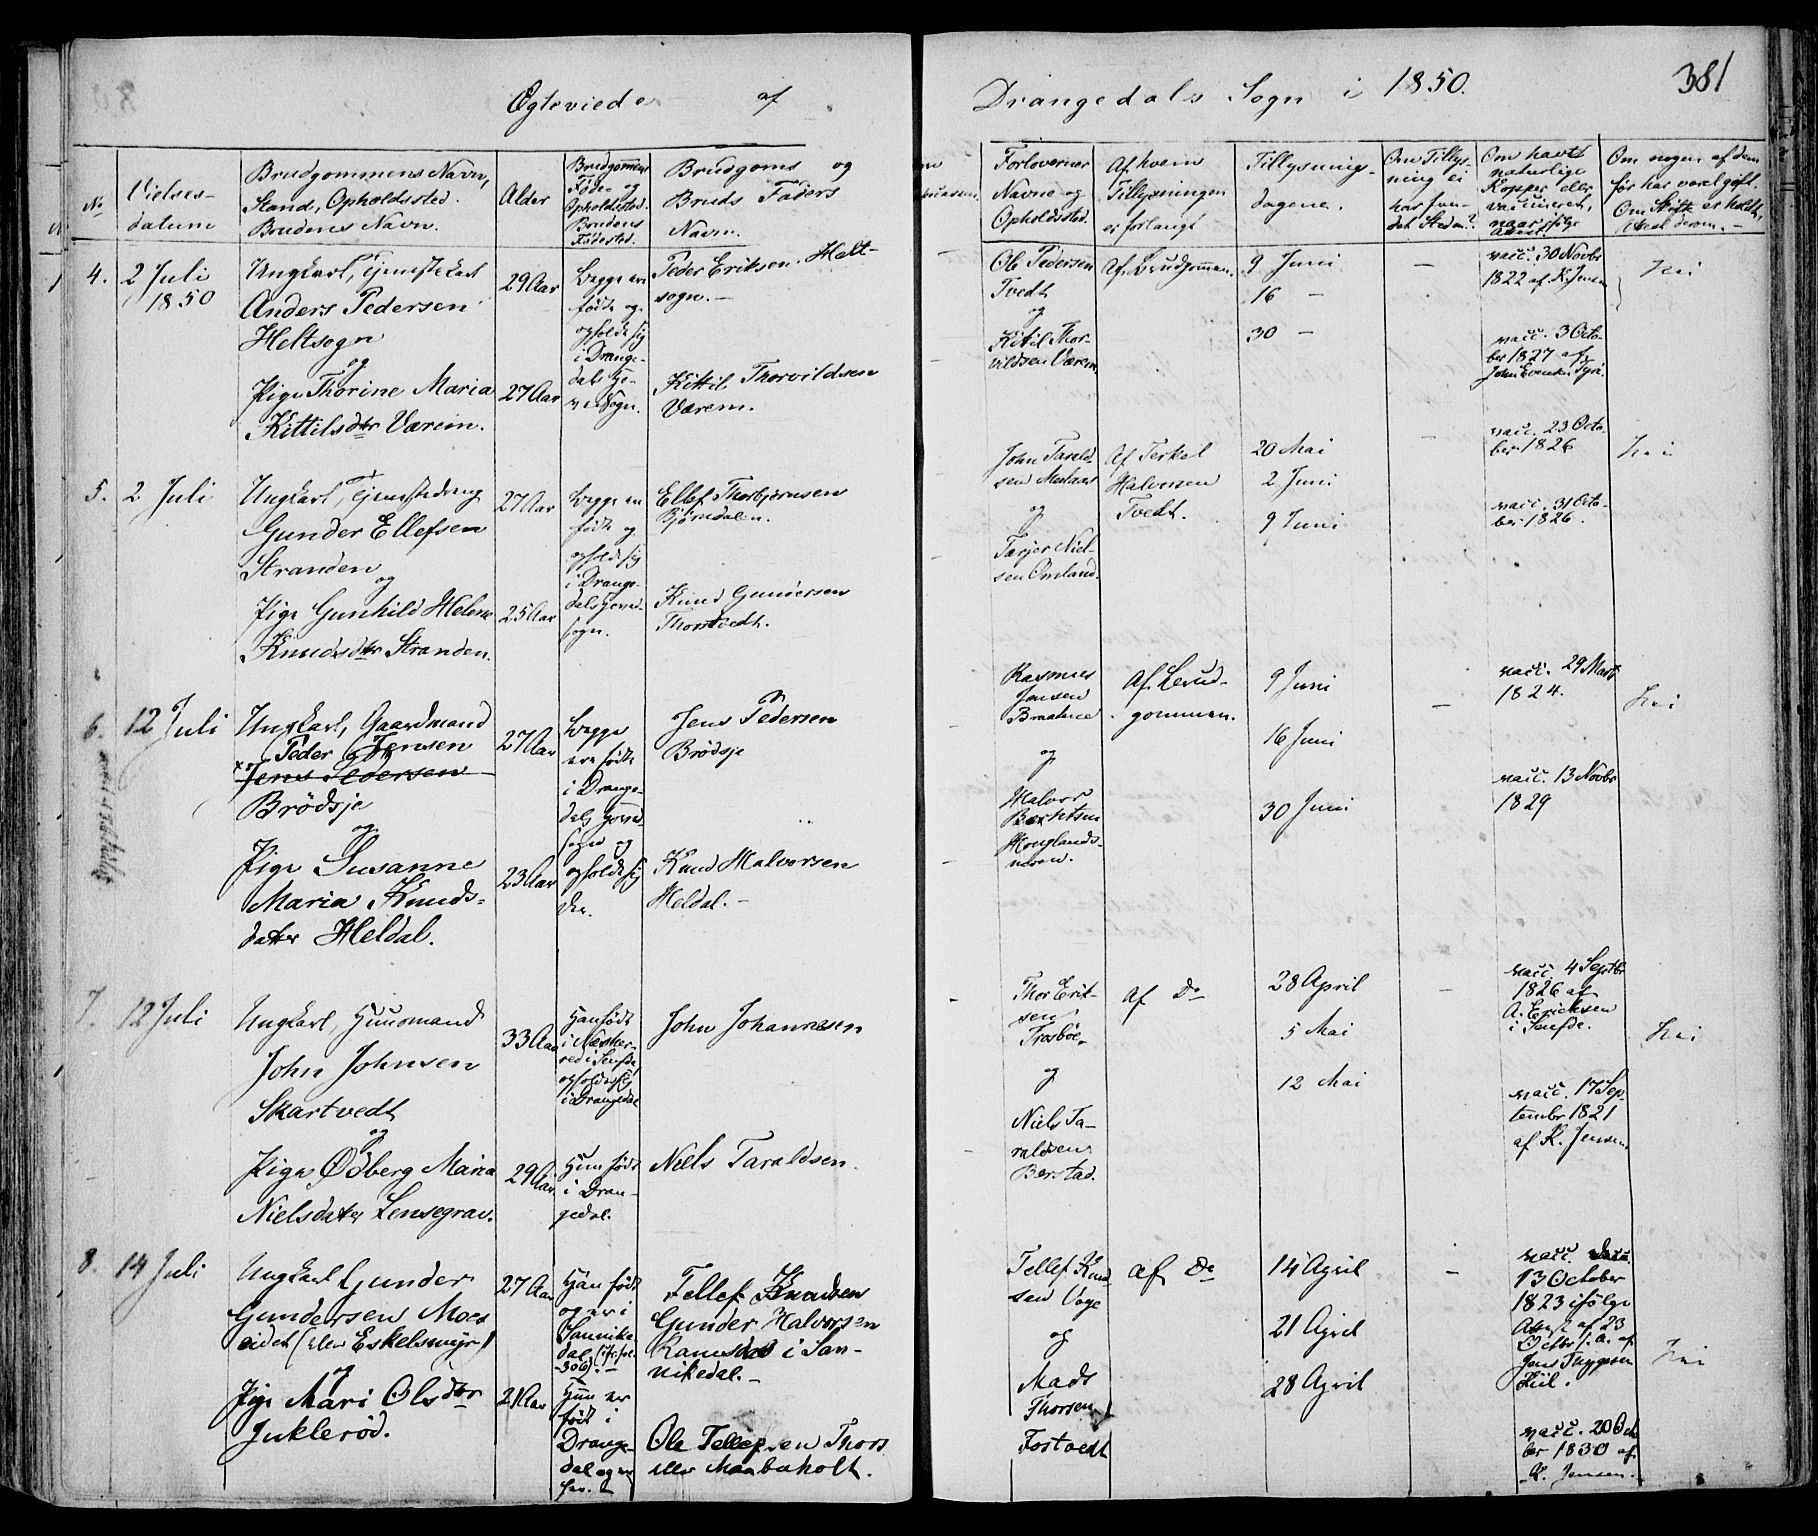 Egteviede af Drangedals Sogn i 1850. 381
No
Vielses-
datum
Brudgommens Navn,
Stand, Opholdssted.
Brudens Navn.
Alder
Brudgommens
Føde- og
Opholdssted.
Brudens
Fødested.
Brudgoms og
Bruds Faders
Navn.
Forlovernes
Navne og
Opholdssted.
Af hvem
Tillysningen
er forlangt
Tillysnings-
dagene.
Om Tillys-
ning ei
har fun-
det Sted
Om havt
naturlige
Kopper eller
vaccineret,
naar ifølge
Attest
Om nogen af dem
før har været gift.
Om Skifte er holdt,
Attest derom.
4.
2 Juli
1850
Ungkarl, Tjenestekarl
Anders Pedersen
Heltsogn
og
Pige Thorine Maria
Kittilsdtr Værem.
29 Aar
27 Aar
Begge ere
fødte og
opholde sig
i Drange-
dals Ho-
vedsogn.
Peder Eriksen Helt-
sogn.
Kittil Thorvildsen
Værem.
Ole Pedersen
Tvedt
og
Kitil Thor-
vildsen Værem.
Af Brudgommen.
9 Juni
16 –
30 –
–
vacc. 30 Novbr
1822 af K. Jensen
vacc. 3 Octo-
ber 1827 af
John Evensen
Nei
5.
2 Juli
Ungkarl, Tjenestedreng
Gunder Ellefsen
Stranden
og
Pige Gunhild Helene
Knudsdtr Stranden.
27 Aar
25 Aar
Begge ere
fødte og
opholde sig
i Drange-
dals Hoved-
sogn.
Ellef Thorbjørnsen
Bjørndalen.
Knud Gundersen
Thorstvedt.
John Tarald-
sen
og
Tarjer Niel-
sen Omland.
Af Terkel
Halvorsen
Tvedt.
20 Mai
2 Juni
9 Juni
–
vacc. 23 Octo-
ber 1826
vacc. 31 Octo-
ber 1826.
Nei
6.
12 Juli
Ungkarl, Gaardmand
Peder Jensen
Jens Pedersen
Brödsje
og
Pige Susanne
Maria Knuds-
datter Heldal.
27 Aar
23 Aar
Begge
ere fødte
i Drange-
dals Hoved
sogn og
opholde sig
der.
Jens Pedersen
Brödsje
Knud Halvorsen
Heldal.
Rasmus
Jensen
Braatene
og
Halvor
Berthsen
Houglands-
moen.
Af Brud-
gommen.
9 Juni
16 Juni
30 Juni
–
vacc. 29 Marts
1824.
vacc. 13 Novbr
1829
Nei
7.
12 Juli
Ungkarl, Huusmand
John Johnsen
Skartvedt
og
Pige Ødberg Maria
Nielsdatter Lensegrav.
33 Aar
29 Aar
Han født
i Næsher-
red i Saufde,
opholder sig
i Drangedal
Hun født
i Dran-
gedal.
John Johannesen
Niels Taraldsen.
Thor Erik-
sen
Trosböe
og
Niels Ta-
raldsen
Berstad.
af Do
28 April
5 Mai
12 Mai
–
vacc. 4 Septbr
1826 af
A. Ericksen
i Saufde.
vacc. 17 Sep-
tembr 1821
af K. Jensen.
Nei
8.
14 Juli
Ungkarl Gunder
Gundersen Moes
eidet (eller Eskelsmyr)
og
Pige Mari Olsdtr
Juklerød.
27 Aar
21 Aar
Han født
og er i
Sannike-
dal
306).
Hun er
født i
Drange-
dal og er
her.
Tellef Knudsen
Gunder Halvorsen
i San-
nikedal.
Ole Tellefsen Thors
eller Maabuholt.
Tellef Knud
sen Voge
og
Mads
Thorsen
Tostvedt
af Do
14 April
21 April
28 April
–
vacc.
13 October
1823 ifølge
Attest af 23
Octbr s. A. af
Jens Thygesen
Kiil.
vacc. 20 Oct
ber 1830 af
K. Jensen.
Nei